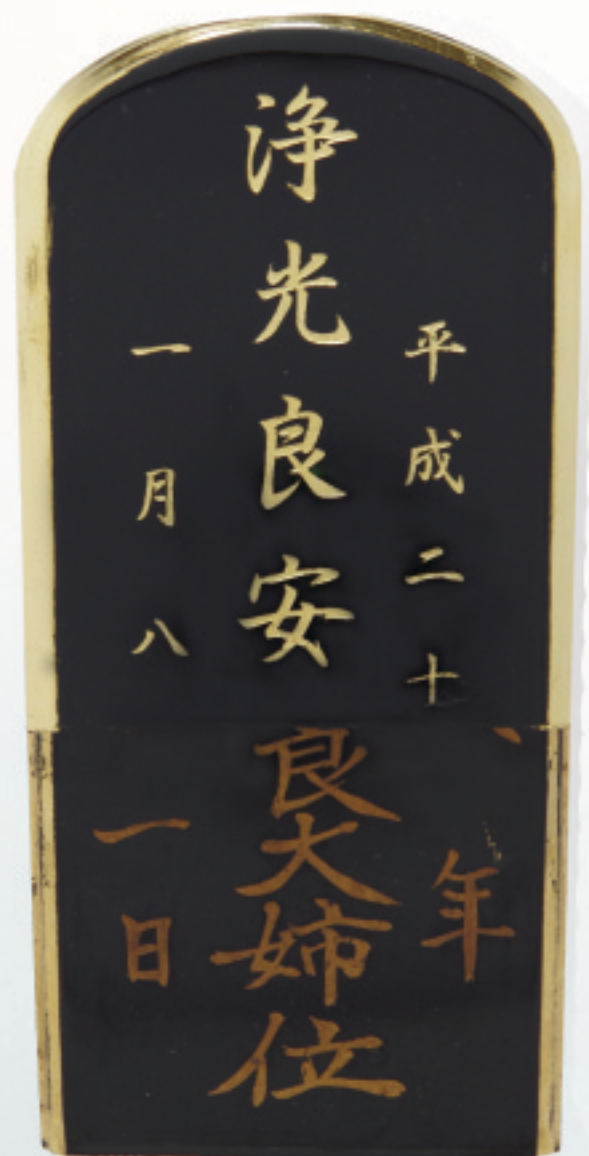 平成二十年
浄光良安良大姉位
一月八一日